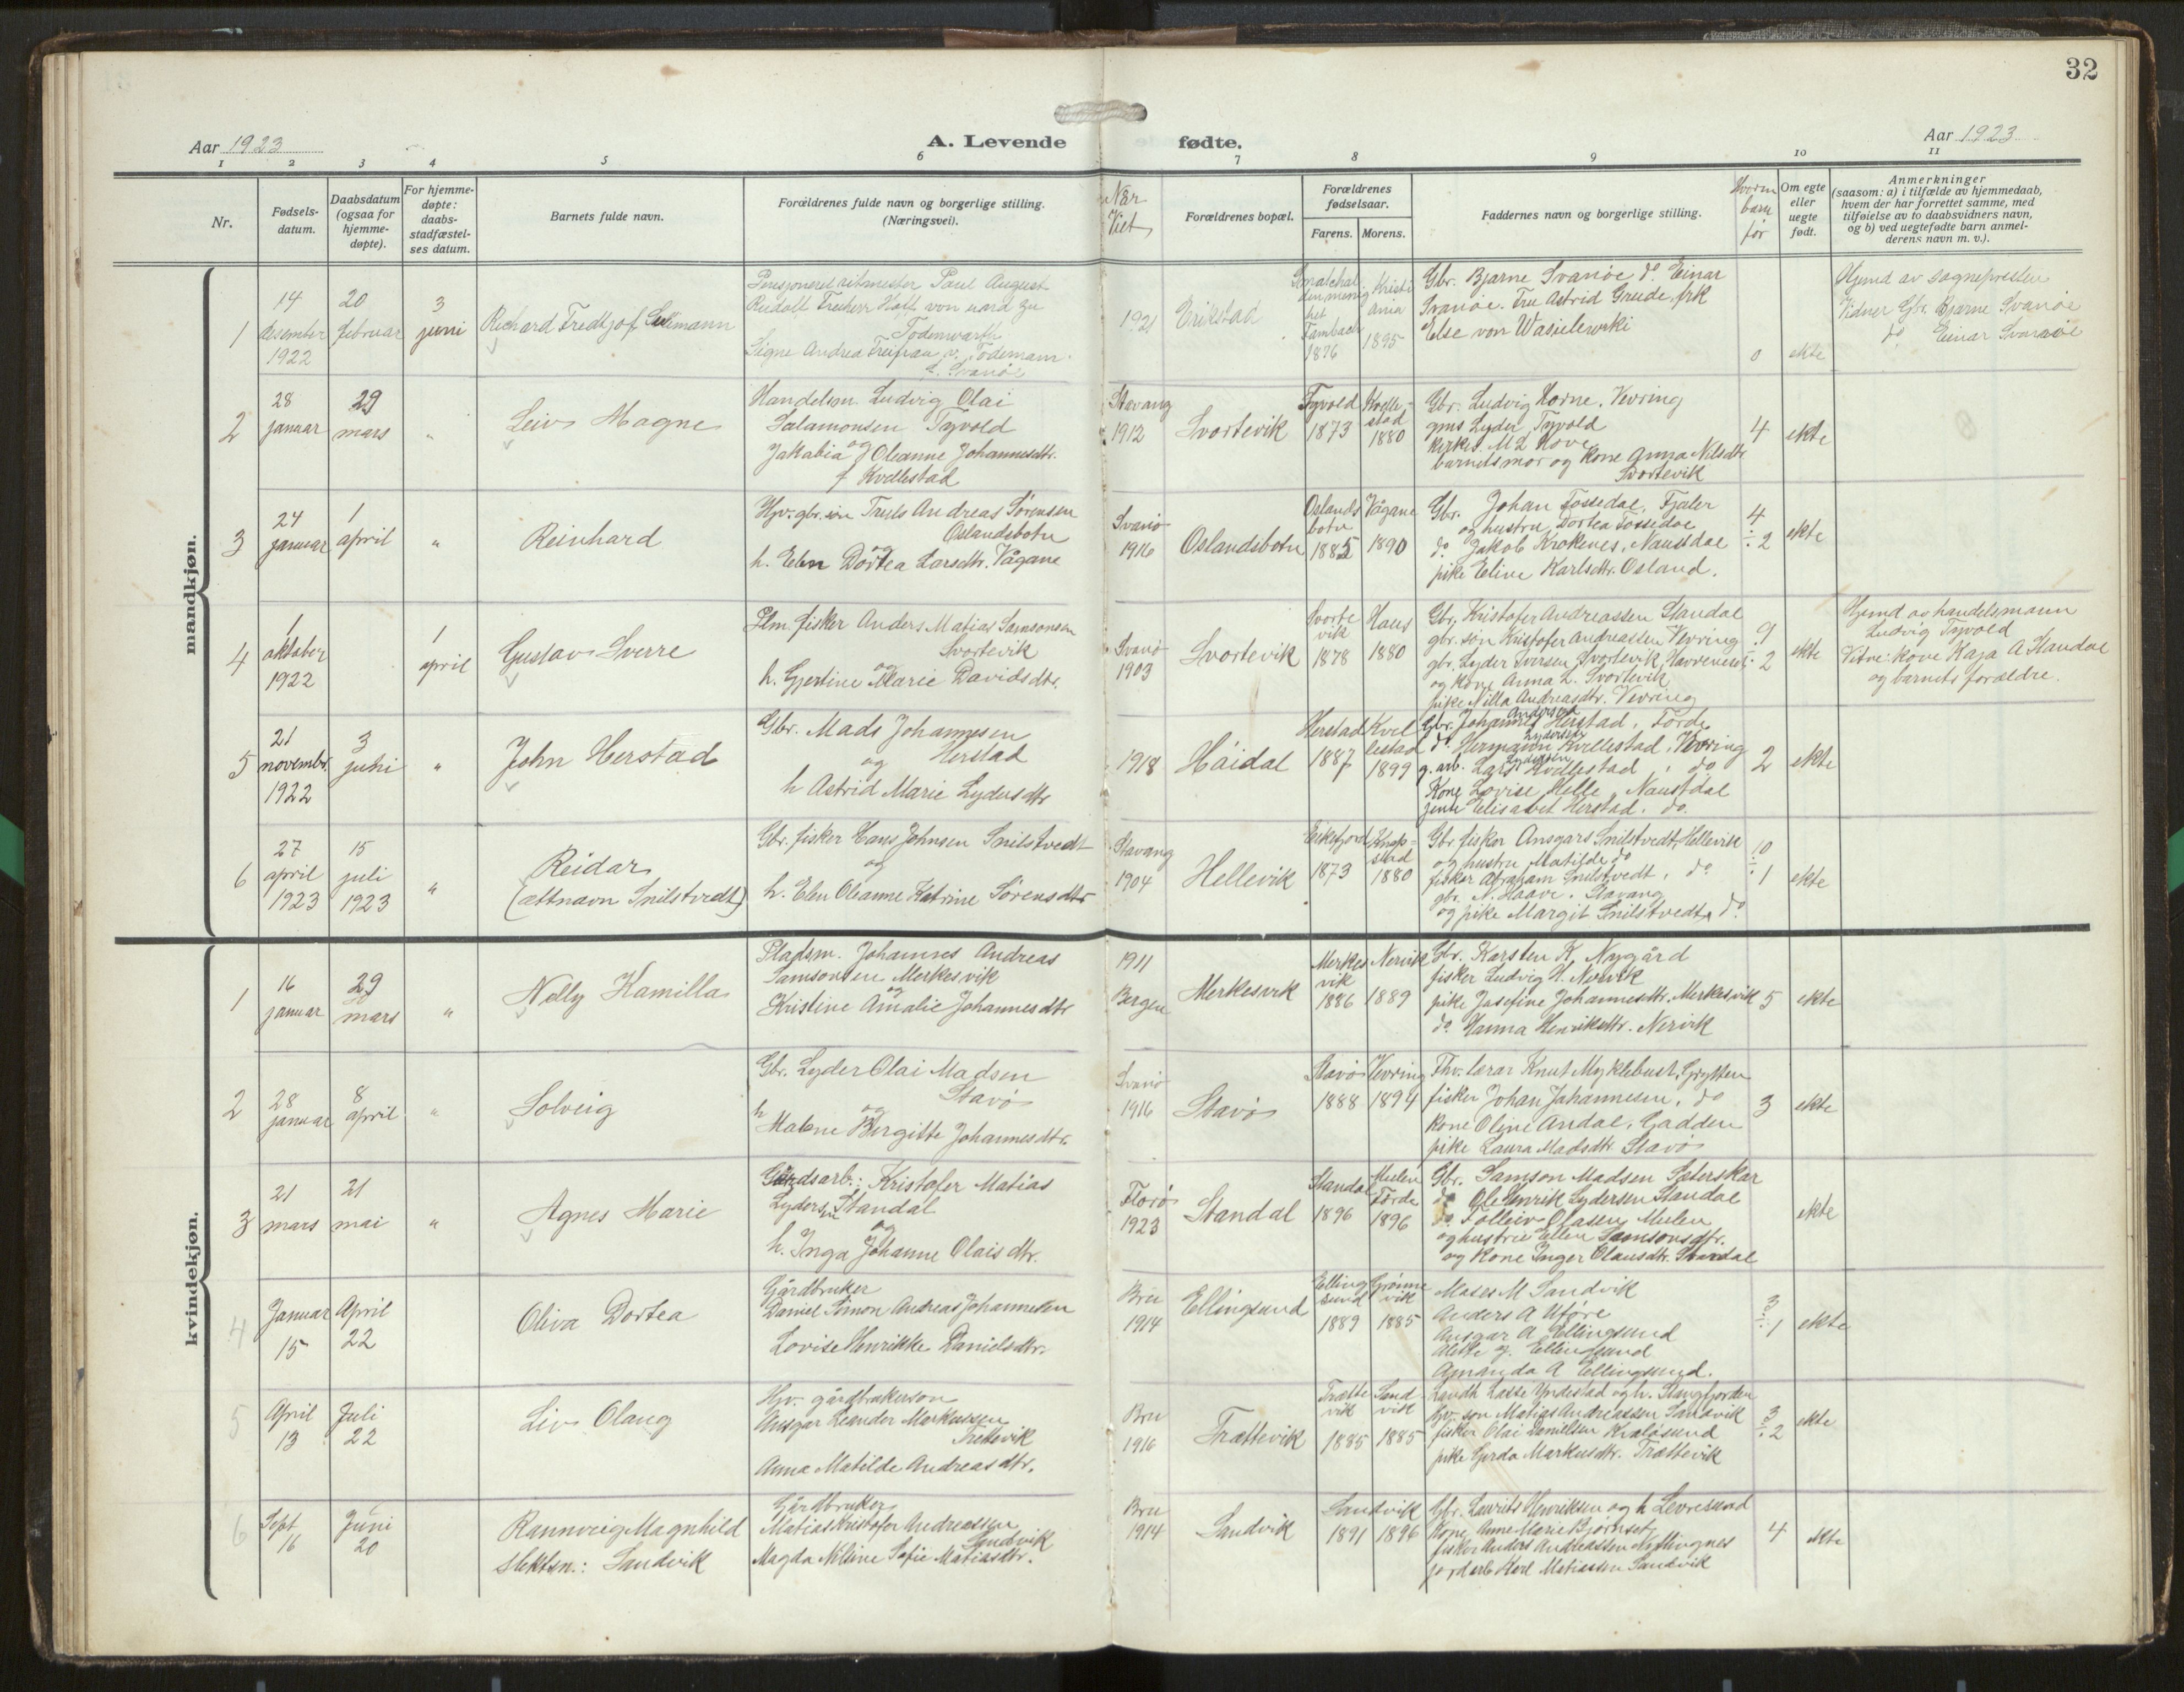 32
Aar 1923
A. Levende fødte.
Aar 1923
1 2 3 4 5 6 7 8 9 10 11
Nr.
Fødsels-
datum.
Daabsdatum
(ogsaa for
hjemme-
døpte).
For hjemme-
døpte:
daabs-
stadfæstel-
ses datum.
Barnets fulde navn.
Forældrenes fulde navn og borgerlige stilling.
(Næringsvei).
Når
Viet
Forældrenes bopæl.
Forældrenes
fødselsaar.
Farens. Morens.
Faddernes navn og borgerlige stilling.
Hvorm
barn
før
Om egte
eller
uegte
født.
Anmerkninger
(saasom: a) i tilfælde av hjemmedaab,
hvem der har forrettet samme, med
tilføielse av to daabsvidners navn,
og b) ved uegtefødte barn anmel-
derens navn m. v.).
mandkjøn.
1
14
desember
1922
20
februar
3
juni
Richard Fredtjof
Pensjoneret ritmester Paul August
Rudolf Freiherr von und zu
Todenwarth
Signe Andrea Freifrau v. Todemann
f. Svanöe
1921
Erikstad
Tambach
1876
Kristi
ania
1895
Gbr. Bjarne Svanöe do Einar
Svanöe. Fru Astrid Grude, frk
Else von Wasielewski
0
ekte
Hjemd av sognepresten
Vidner Gbr. Bjarne Svanöe
do Einar Svanöe
2
28
januar
29
mars
"
Leiv Magne
Handelsm. Ludvig Olai
Salamonsen Tyvold
og
Jakobia Oleanne Johannesdtr.
f Kvellestad
Stavang
1912
Svortevik
Tyvold
1873
Kvelle-
stad
1880
Gbr. Ludvig Horne, Vevring
gms Lyder Tyvold
kirkes. M L Hove
barnets mor og kone Anna Nilsdtr
Svortevik
4
ekte
3
24
januar
1
april
"
Reinhard
Hjv. gbr. søn Truls Andreas Sørensen
Oslandsbotn
og
h. Elen Dortea Larsdtr. Vågane
Svanö
1916
Oslandsbotn
Oslands
botn
1885
Vågane
1890
Gbr. Johan Fossedal, Fjaler
og hustru Dortea Fossedal
do Jakob Krokenes, Naustdal
pike Eline Karlsdtr. Osland.
4
÷ 2
ekte
4
1
oktober
1922
1
april
Gustav Sverre
Plm. fisker Anders Matias Samsonsen
Svortevik
og
h. Gjertine Marie Davidsdtr.
Svanö
1903
Svortevik
Svorte
vik
1878
Haus
1880
Gbr. Kristofer Andreassen Standal
gbr. søn Kristofer Andreassen Vevring
gbr. Lyder Iversen Svortevik,
og kone Anna L. Svortevik
pike Nilla Andreasdtr. Vevring
9
÷ 2
ekte
Hjemd av handelsmann
Ludvig Tyvold
Vitne: kone Kaja A Standal
og barnets forældre.
5
21
novembr.
1922
3
juni
"
John Herstad
Gbr. Mads Johannesen
og Herstad
h Astrid Marie Lydersdtr
1918
Håidal
Herstad
1887
Kvel
lestad
1899
Gbr. Johannes Andersen Herstad, Førde
do Hermann Lydersen Kvellestad, Vevring
g. arb. Lars Lydersen Kvellestad, do
Kone Lovise Helle, Naustdal
jente Elisabet Herstad, do.
2
ekte
6
27
april
1923
15
juli
1923
"
Reidar
(ættnavn Snilstvedt)
Gbr. fisker Hans Johnsen Snilstvedt
og
h. Elen Oleanne Katrine Sørensdtr
Stavang
1904
Hellevik
Eikefjord
1873
Knap-
stad
1880
Gbr. fisker Ansgars Snilstvedt, Hellevik
og hustru Matilde do
fisker Abraham Snilstvedt, do
gbr. N. Haave, Stavang
og pike Margit Snilstvedt, do
10
÷ 1
ekte
kvindekjøn.
1
16
januar
29
mars
"
Nelly Kamilla
Pladsm. Johannes Andreas
Samsonsen Merkesvik
og
Kristine Amalie Johannesdtr
1911
Bergen
Merkesvik
Merkes
vik
1886
Nervik
1889
Gbr. Karsten K. Nygård
fisker Ludvig H. Nervik
pike Josefine Johannesdtr. Merkesvik
do. Hanna Henriksdtr. Nervik
5
ekte
2
28
januar
8
april
"
Solveig
Gbr. Lyder Olai Madsen
Stavö
og
h Malene Bergitte Johannesdtr.
Svanö
1916
Stavö
Stavö
1888
Vevring
1894
Thv. lærar Knut Myklebust, Grytten
fisker Johan Johannesen, do
kone Oline Andal, Gadden
pike Laura Madsdtr Stavö
3
ekte
3
21
mars
21
mai
"
Agnes Marie
Gårdsarb.: Kristofer Matias
Lydersen Standal
og
h. Inga Johanne Olaisdtr.
Florö
1923
Standal
Standal
1896
Mulen
Förde
1896
Gbr. Samson Madsen Sæterskar
do Ole Henrik Lydersen Standal
do. Folleiv Olasen Mulen
og hustru Ellen Samsonsdtr.
og kone Inger Olausdtr. Standal
ekte
4
Januar
15
April
22
Oliva Dortea
Gårdbruker
Daniel Simon Andreas Johannesen
Lovise Henrikke Danielsdtr.
Bru
1914
Ellingsund
Elling
sund
1889
Grönne
vik
1885
Moses M Sandvik
Anders A Uføre
Ansgar A Ellingsund
Alette J. Ellingsund
Amanda A Ellingsund.
3
÷ 1
ekte
5
April
13
Juli
22
Liv Olaug
Hjv. gårdbrukerson
Ansgar Leander Markussen
Trettevik
Anna Matilde Andreasdtr.
Bru
1916
Trættevik
Trætte
vik
1885
Sand
vik
1885
Landh. Lasse Yndestad og h. Stangfjorden
hjv. søn Matias Andreassen Sandvik
fisker Olai Danielsen Kvaløsund
pike Gerda Markusdtr. Trættevik
3
÷ 2
ekte
6
Sept
16
Juni
20
Rannveig Magnhild
slektsn.: Sandvik
Gårdbruker
Matias Kristofer Andreassen
Sandvik
Magda Nilsine Sofie Matiasdtr.
Bru
1914
Sandvik
Sandvik
1891 1896
Gbr. Laurits Henriksen og h Levresund
Kone Anne Marie Bjørnset
fisker Anders Andreassen
jordarb Karl Matiassen Sandvik
4
ekte